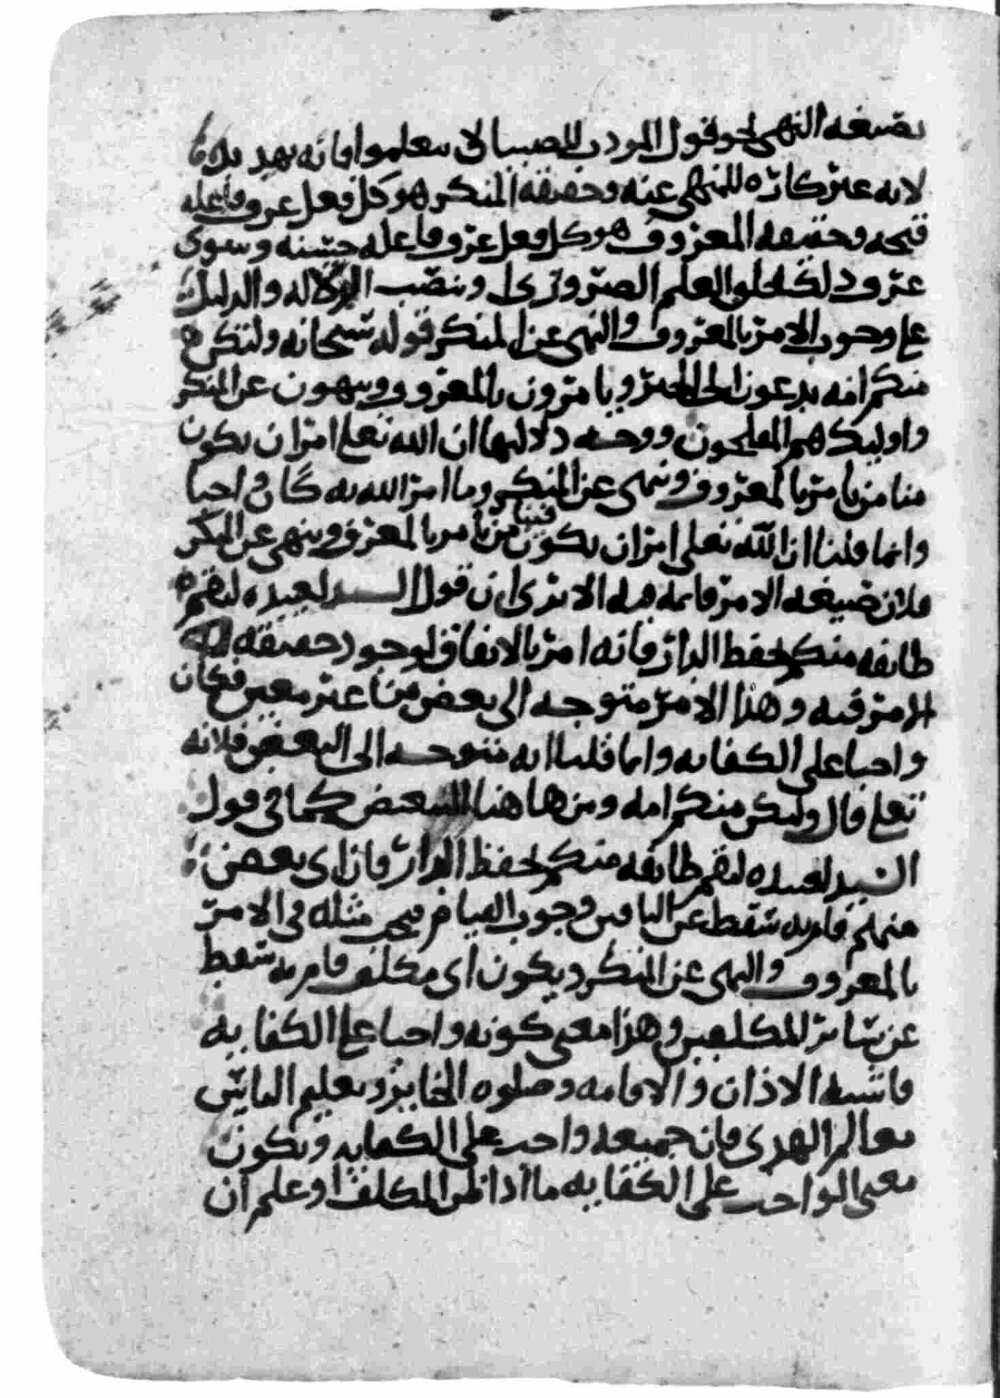 بصيغة النهي نحو قول المؤدب للصبيان لا تعلموا فانه تهديد
لانه غير كاره للمنهي عنه وحقيقة المنكر هو كل فعل عرف فاعله
قبحه وحقيقة المعروف هو كل فعل عرف فاعله حسنه وسوى
عرف ذلك بخلق العلم الضروري او بنصب الادلة والدليل
على وجوب الامر بالمعروف والنهي عن المنكر قوله سبحانه ولتكن
منكم امة يدعون الى الخير ويامرون بالمعروف وينهون عن المنكر
واوليك هم المفلحون ووجه دلالتها ان الله تعلى امر ان يكون
منا من يامر بالمعروف وينهى عن المنكر وما امر الله به كان واجبا
وانما قلنا ان الله تعلى امر ان يكون فينا من يامر بالمعروف وينهى عن المنكر
فلان صيغة الامر قائمة فيه الا ترى ان قول السيد لعبيده لتقم
طائفة منكم لحفظ الدار فانه امر بالاتفاق لوجود حقيقة
الامر فيه وهذا الامر متوجه الى بعض منا غير معين فكان
واجبا على الكفاية وانما قلنا انه متوجه الى البعض فلانه
تعلى قال ولتكن منكم امة ومن هاهنا للتبعيض كما في قول
السيد لعبيده لتقم طائفة منكم لحفظ الدار فان اي بعض
منهم قام به سقط عن الباقين وجوب القيام فيجي مثله في الامر
بالمعروف والنهي عن المنكر ويكون اي مكلف قام به سقط
عن سائر المكلفين وهذا معنى كونه واجبا على الكفاية
فاشبه الاذان والاقامة وصلوة الجنايز وتعليم الناس
معالم الهدى فان جميعه واجب على الكفاية ويكون
معنى الواجب على الكفاية ما اذا ظن المكلف او علم ان